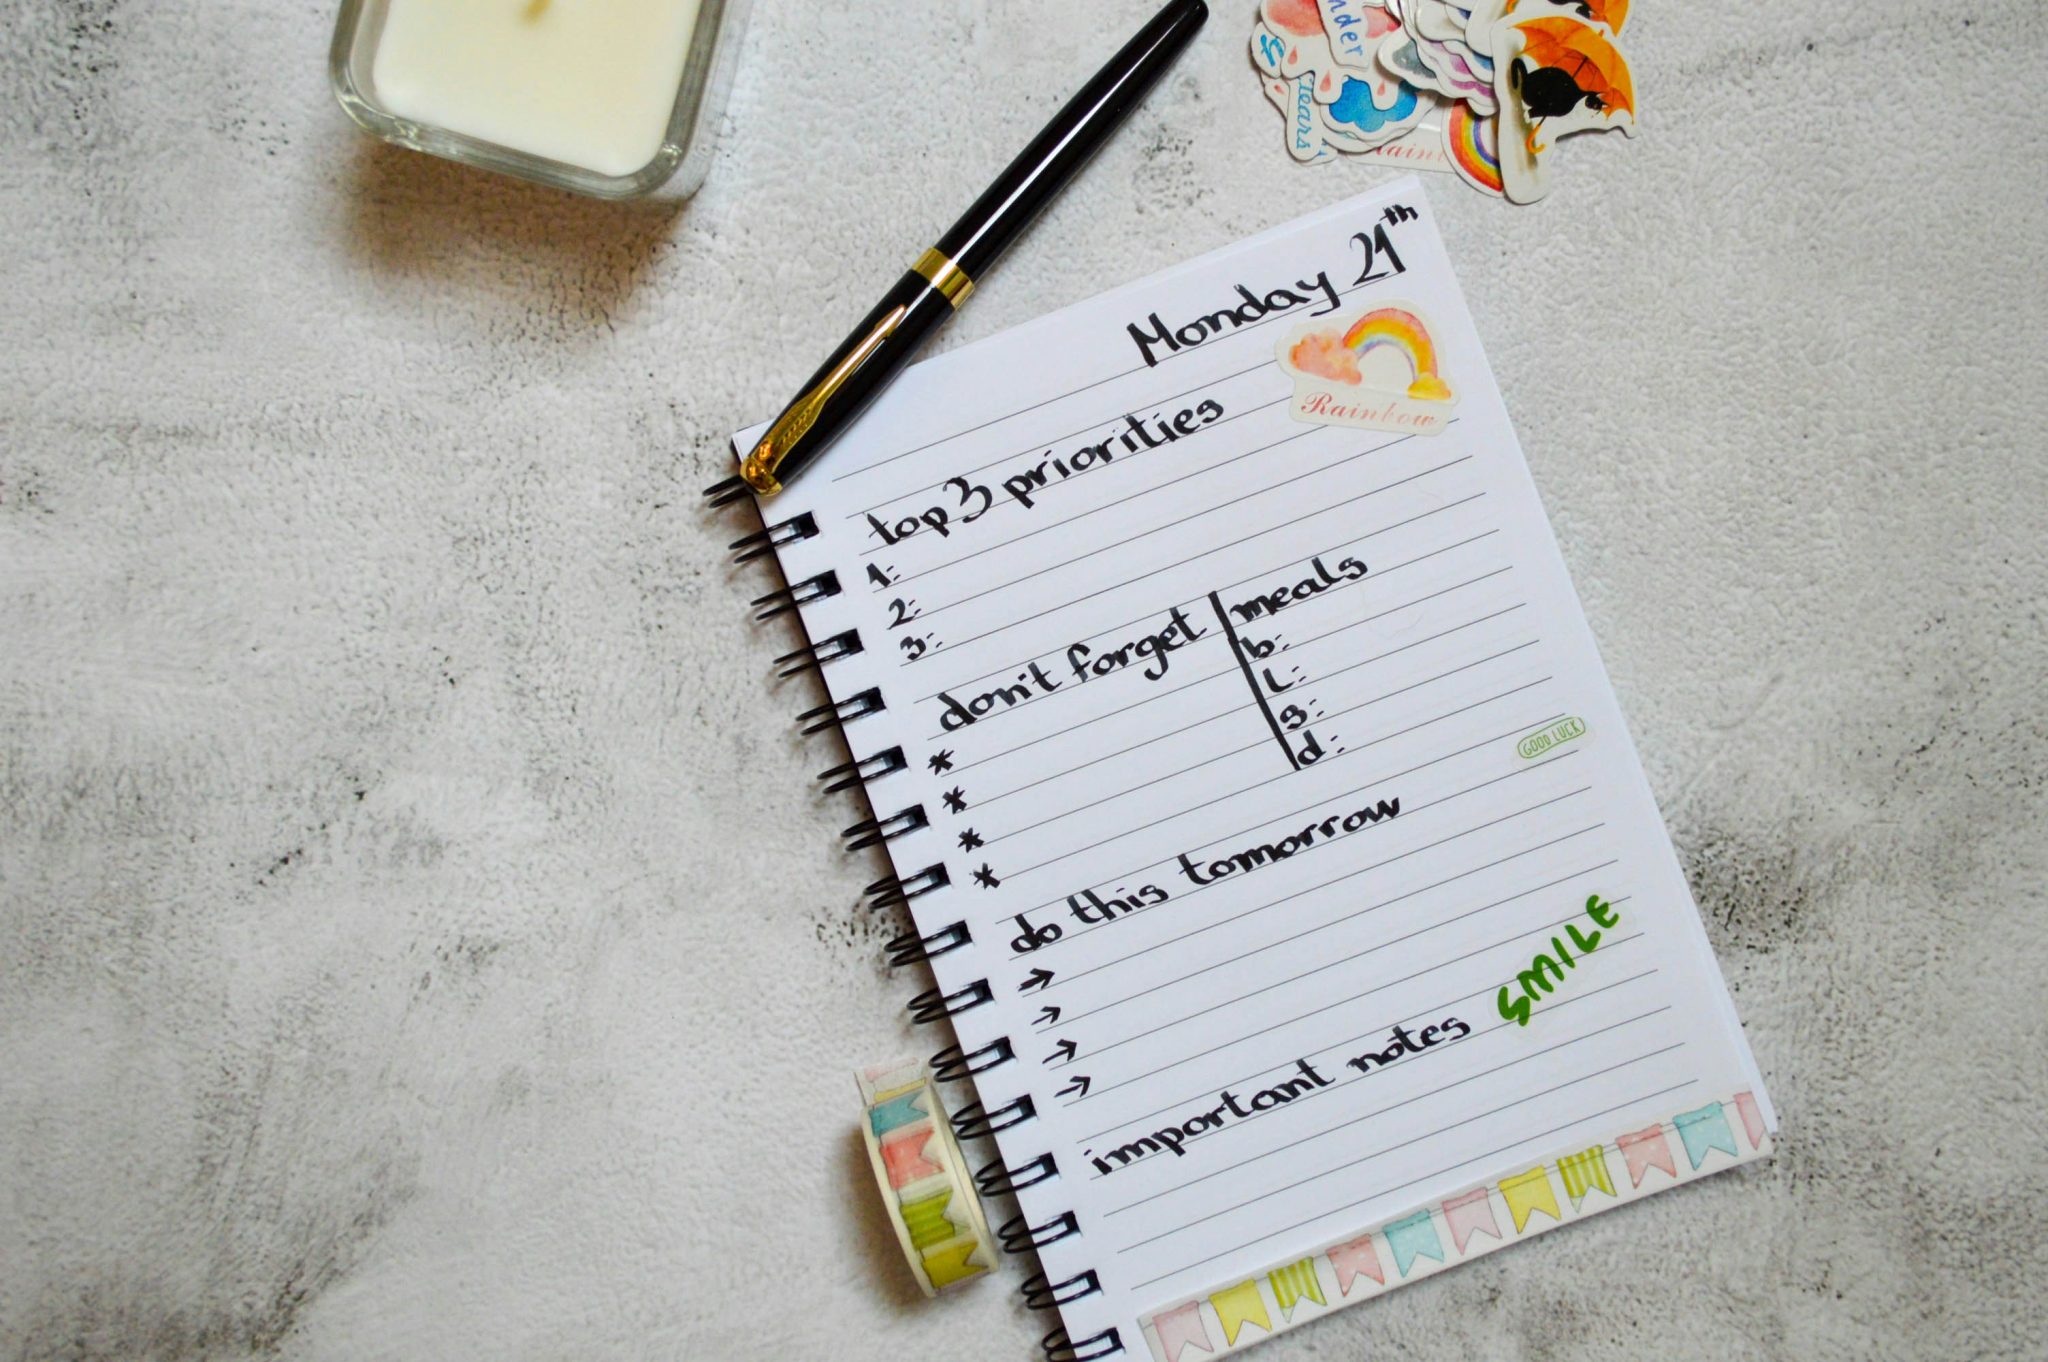 nder
tears
Monday 21th
Rainbow
top 3 priorities
1:-
2:-
3:-
don't forget
*
*
*
*
meals
b:-
L:-
s:-
d:-
GOOD LUCK
do this tomorrow
→
→
→
→
SMILE
important notes